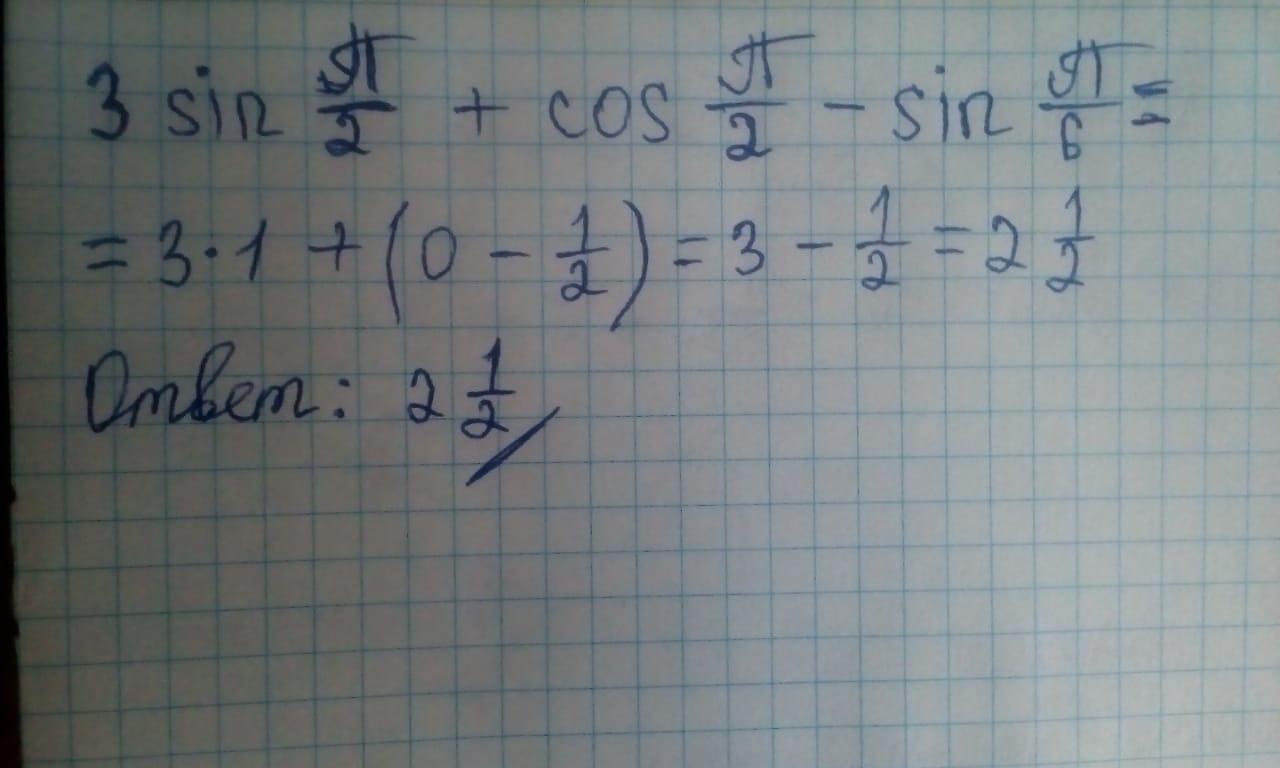 3 sin π/2 + cos π/2 − sin π/6 =
= 3·1 + (0 − 1/2) = 3 − 1/2 = 2 1/2
Ответ: 2 1/2